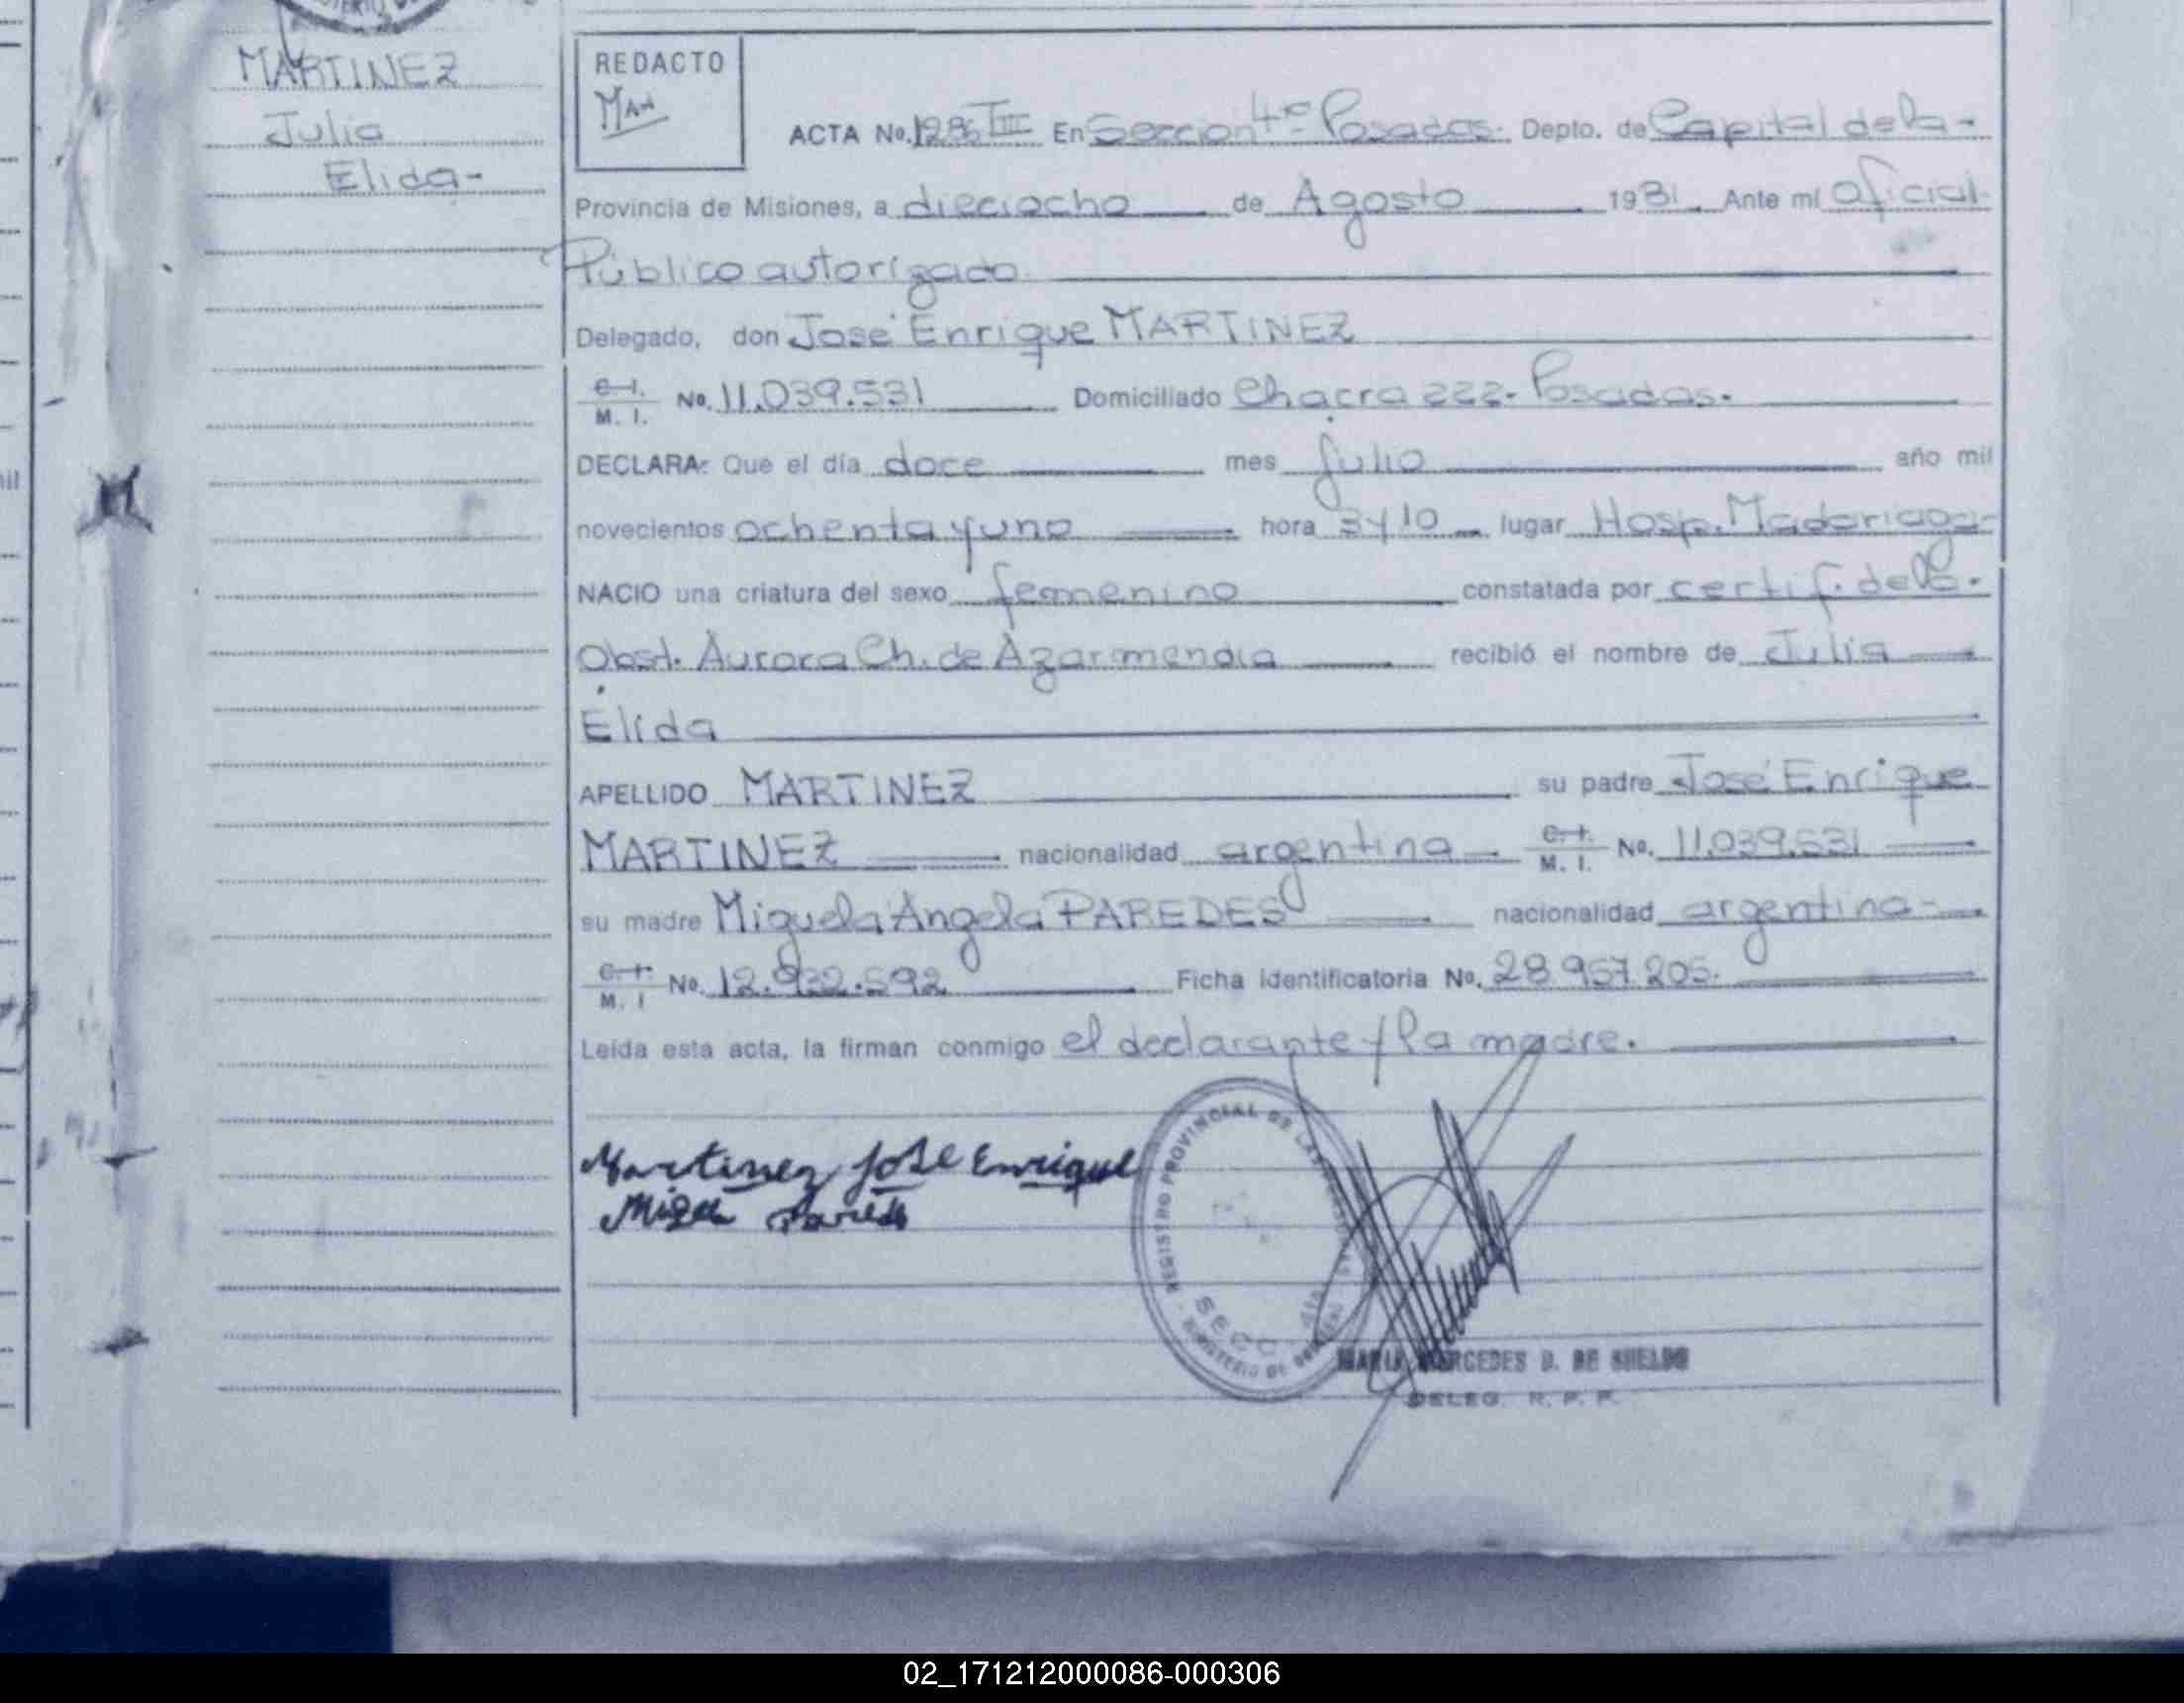 MARTINEZ
Julia
Elida-
REDACTO
ACTA No. 1286 III En Seccion 4ª Posadas. Depto. de Capital de la-
Provincia de Misiones, a dieciocho de Agosto 1981 Ante mí Oficial
Público autorizado
Delegado, don José Enrique MARTINEZ
C. I. M. I. No. 11.039.531 Domiciliado Chacra 222. Posadas.
DECLARA: Que el día doce mes julio año mil
novecientos ochenta y uno hora 3 y 10 lugar Hosp. Madariaga-
NACIO una criatura del sexo femenino constatada por certif. de la.
Obst. Aurora Ch. de Azarmendia recibió el nombre de Julia
Elida
APELLIDO MARTINEZ su padre José Enrique
MARTINEZ nacionalidad argentina C. I. M. I. No. 11.039.531
su madre Miguela Angela PAREDES nacionalidad argentina-
C. I. M. I No. 12.932.592 Ficha identificatoria No. 28.957.205.
Leída esta acta, la firman conmigo el declarante y la madre.
Martinez José Enrique
Paredes
REGISTRO PROVINCIAL DE LAS
MARIA MERCEDES D. DE
DELEG. R. P. P.
02_171212000086-000306